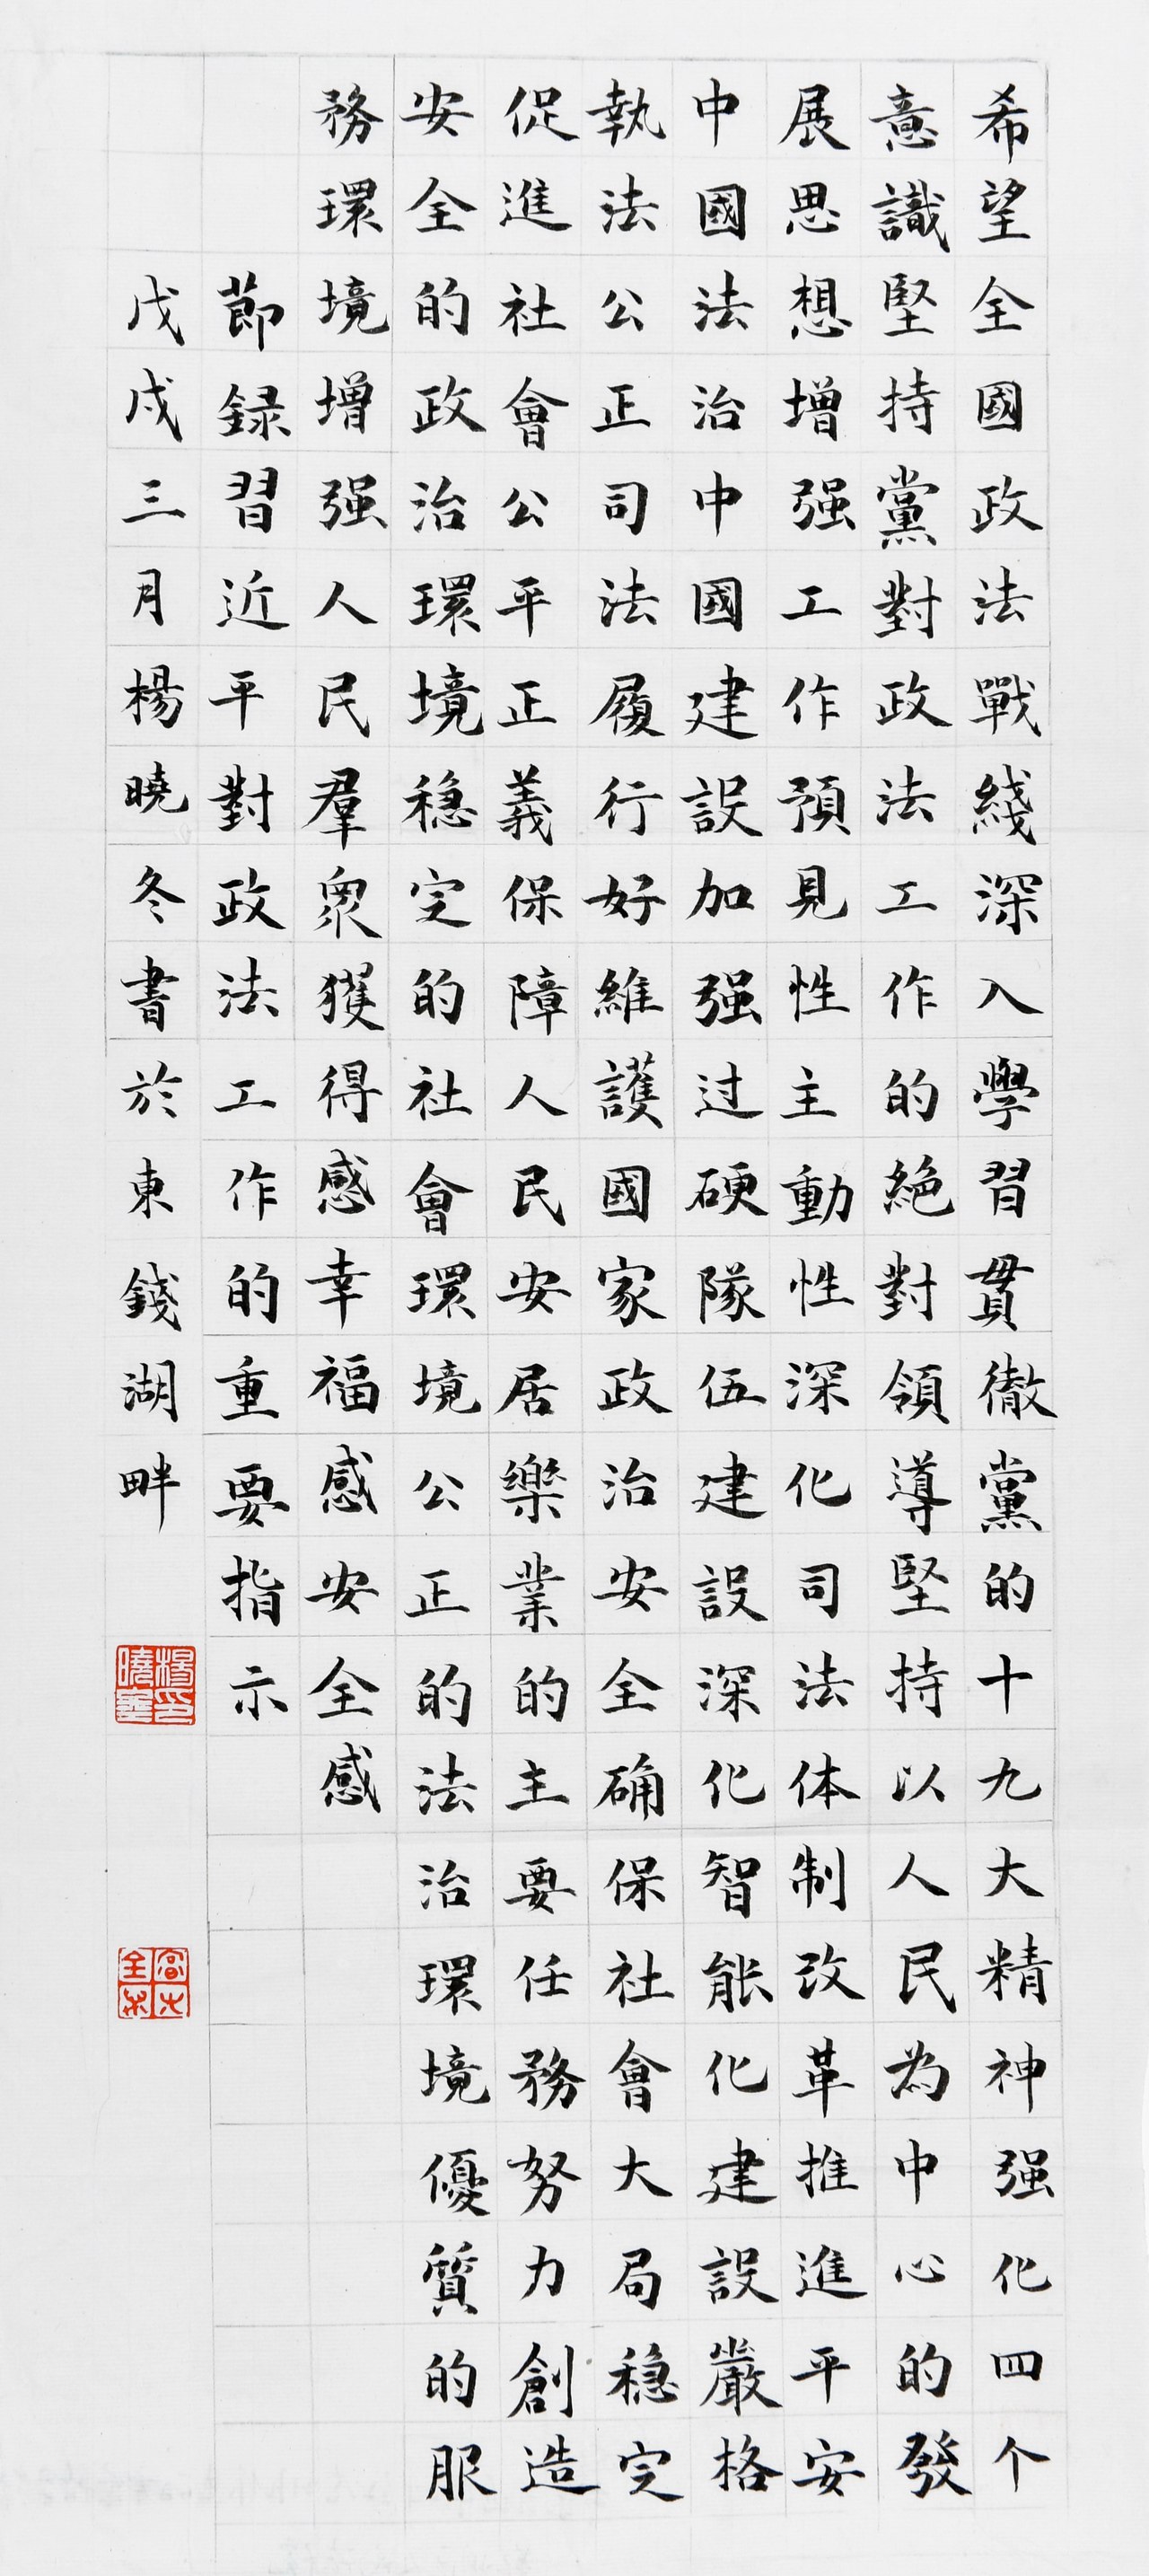 希望全國政法戰綫深入學習貫徹黨的十九大精神强化四个
意識堅持黨對政法工作的絕對領導堅持以人民為中心的發
展思想增强工作預見性主動性深化司法体制改革推進平安
中國法治中國建設加强过硬隊伍建設深化智能化建設嚴格
執法公正司法履行好維護國家政治安全确保社會大局穩定
促進社會公平正義保障人民安居樂業的主要任務努力創造
安全的政治環境穩定的社會環境公正的法治環境優質的服
務環境增强人民羣衆獲得感幸福感安全感
節録習近平對政法工作的重要指示
戊戌三月楊曉冬書於東錢湖畔